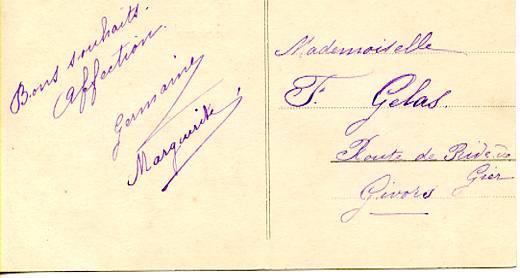 Bons souhaits.
Affection.
Germaine
Marguerite
Mademoiselle
F. Gelas.
Route de Rive de
Gier
Givors